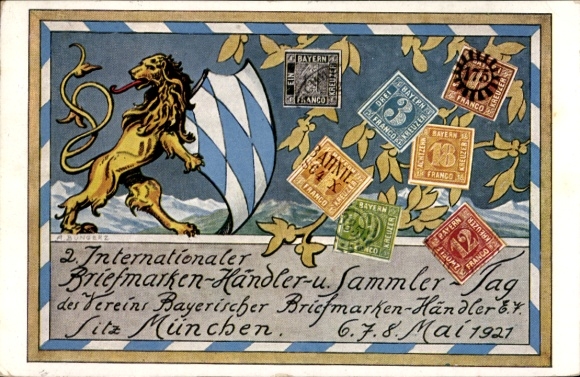 EIN BAYERN KREUZER FRANCO
DREI BAYERN KREUZER FRANCO 3
KREUZER FRANCO 175
BAYERN ACHTZEHN KREUZER FRANCO 18
APRIL
KREUZER FRANCO
BAYERN ZWÖLF KREUZER FRANCO 12
2. Internationaler
Briefmarken-Händler-u. Sammler-Tag
des Vereins Bayerischer Briefmarken-Händler E.V.
Sitz München. 6.7.8. Mai 1921